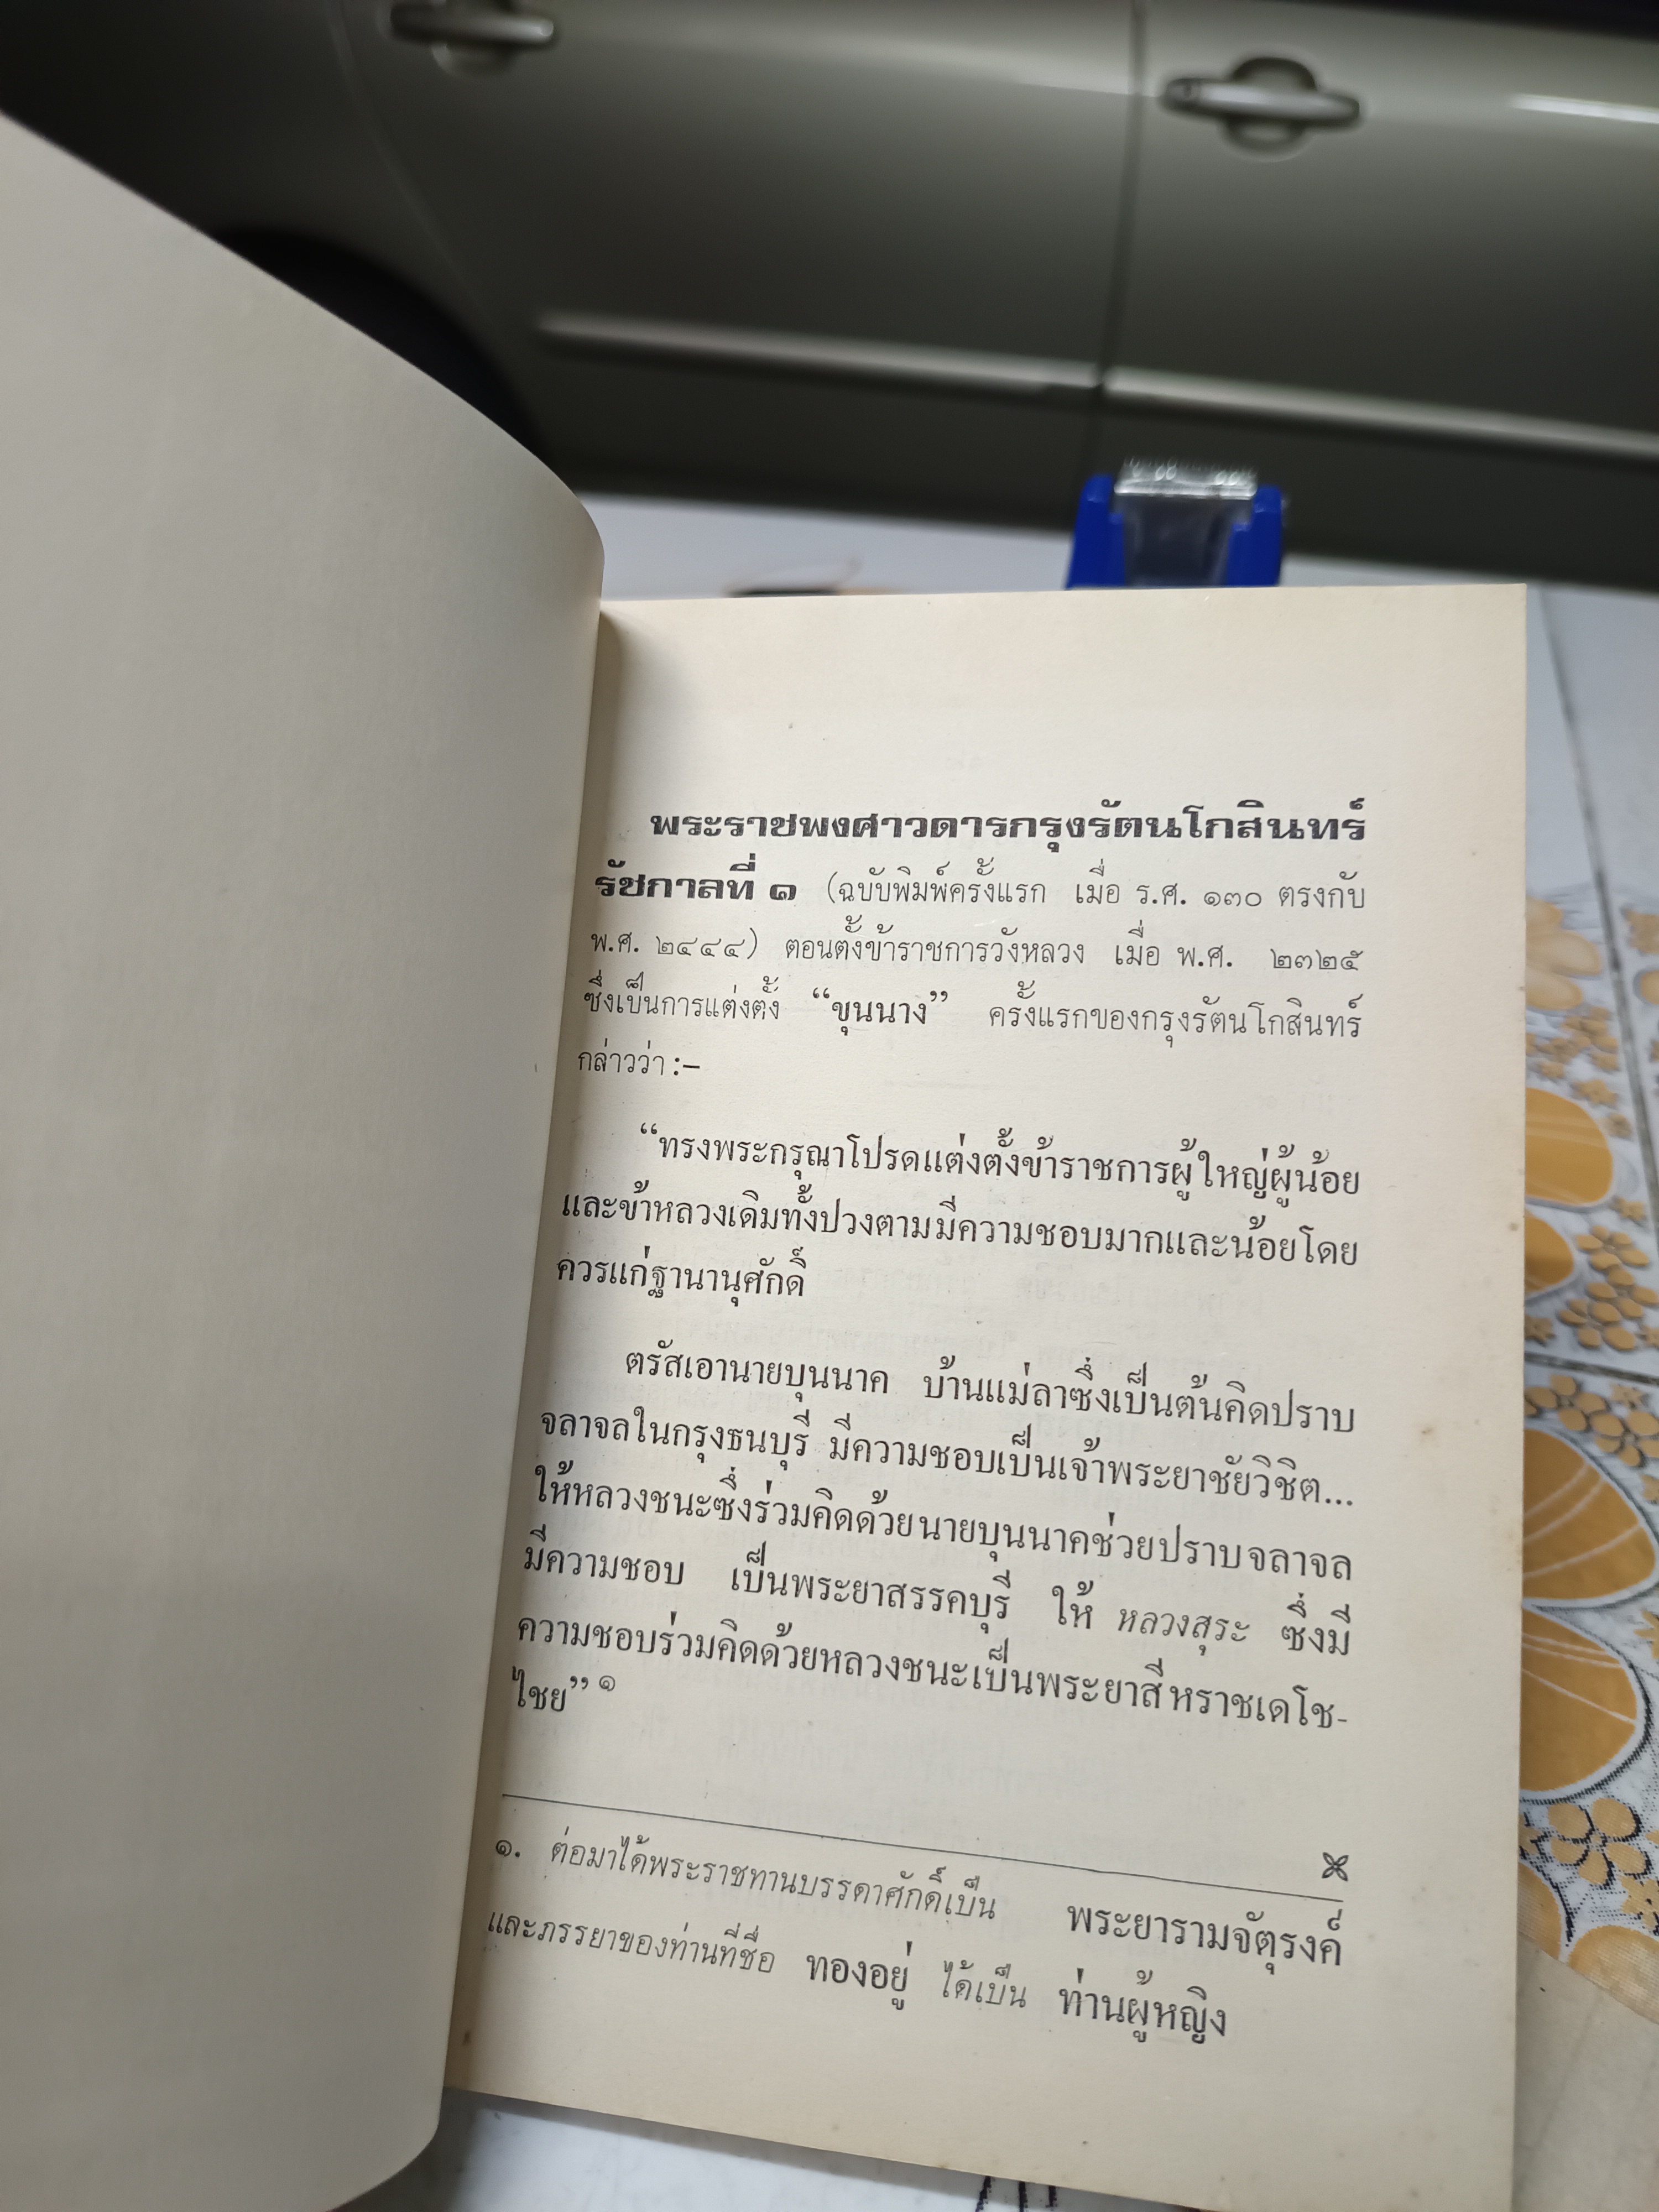 พระราชพงศาวดารกรุงรัตนโกสินทร์
รัชกาลที่ ๑ (ฉบับพิมพ์ครั้งแรก เมื่อ ร.ศ. ๑๓๐ ตรงกับ
พ.ศ. ๒๔๔๔) ตอนตั้งข้าราชการวังหลวง เมื่อ พ.ศ. ๒๓๒๕
ซึ่งเป็นการแต่งตั้ง “ขุนนาง” ครั้งแรกของกรุงรัตนโกสินทร์
กล่าวว่า :–
“ทรงพระกรุณาโปรดแต่งตั้งข้าราชการผู้ใหญ่ผู้น้อย
และข้าหลวงเดิมทั้งปวงตามมีความชอบมากและน้อยโดย
ควรแก่ฐานานุศักดิ์
ตรัสเอานายบุนนาค บ้านแม่ลาซึ่งเป็นต้นคิดปราบ
จลาจลในกรุงธนบุรี มีความชอบเป็นเจ้าพระยาชัยวิชิต...
ให้หลวงชนะซึ่งร่วมคิดด้วยนายบุนนาคช่วยปราบจลาจล
มีความชอบ เป็นพระยาสรรคบุรี ให้ หลวงสุระ ซึ่งมี
ความชอบร่วมคิดด้วยหลวงชนะเป็นพระยาสีหราชเดโช-
ไชย” ๑
๑. ต่อมาได้พระราชทานบรรดาศักดิ์เป็น พระยารามจัตุรงค์
และภรรยาของท่านที่ชื่อ ทองอยู่ ได้เป็น ท่านผู้หญิง